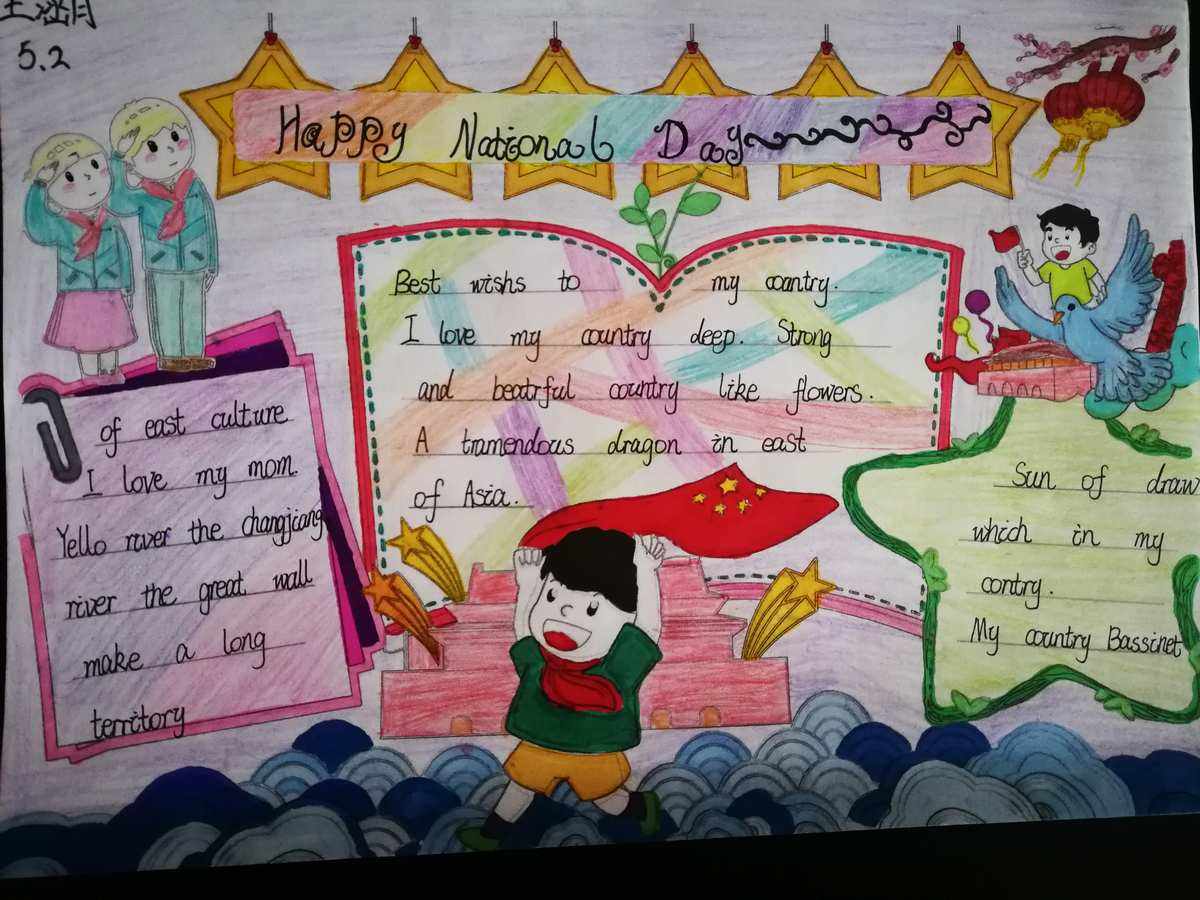 5.2
Happy National Day
Best wishs to my coantry.
I love my country deep. Strong
and beatrful country like flowers.
A tramendous dragon in east
of Asia.
of east culture
I love my mom.
Yello river the changjiang
river the great wall
make a long
territory
Sun of draw
which in my
contry.
My country Bassinet